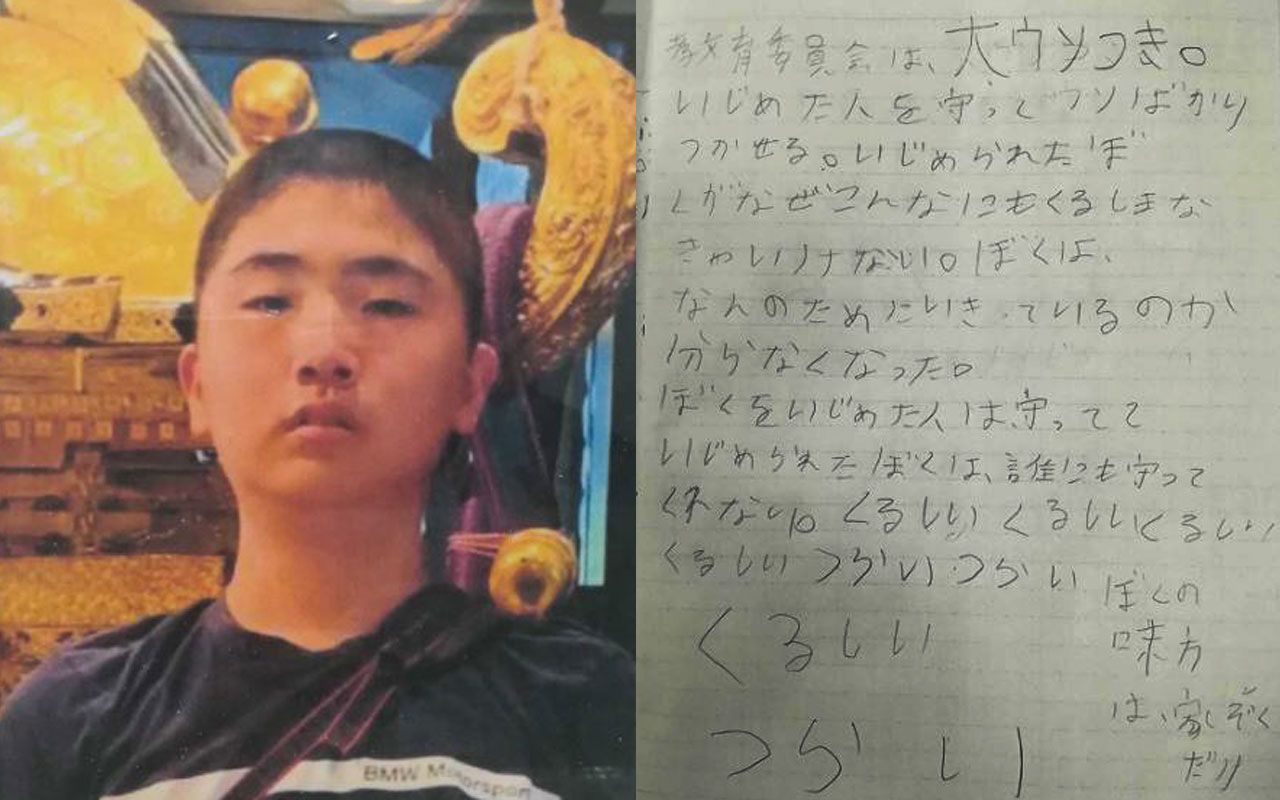 BMW Motorsport
教育委員会は、大ウソつき。
いじめた人を守ってウソばかり
つかせる。いじめられたぼ
くがなぜこんなにもくるしまな
きゃいけない。ぼくは、
なんのためにいきているのか
分らなくなった。
ぼくをいじめた人は守ってて
いじめられたぼくは、誰にも守って
くれない。くるしいくるしいくるしい
くるしいつらいつらい
くるしい
つらい
ぼくの
味方
は、家ぞく
だけ